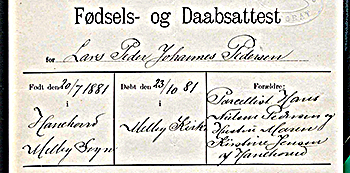 Fødsels- og Daabsattest
for Lars Peder Johannes Pedersen
Født den 20/7 1881
i
Hanehoved
Melby Sogn
Døbt den 23/10 81
i
Melby Kirke
Forældre:
Parcellist Hans
Nielsen Pedersen og
Hustru Maren
Kirstine Jensen
af Hanehoved